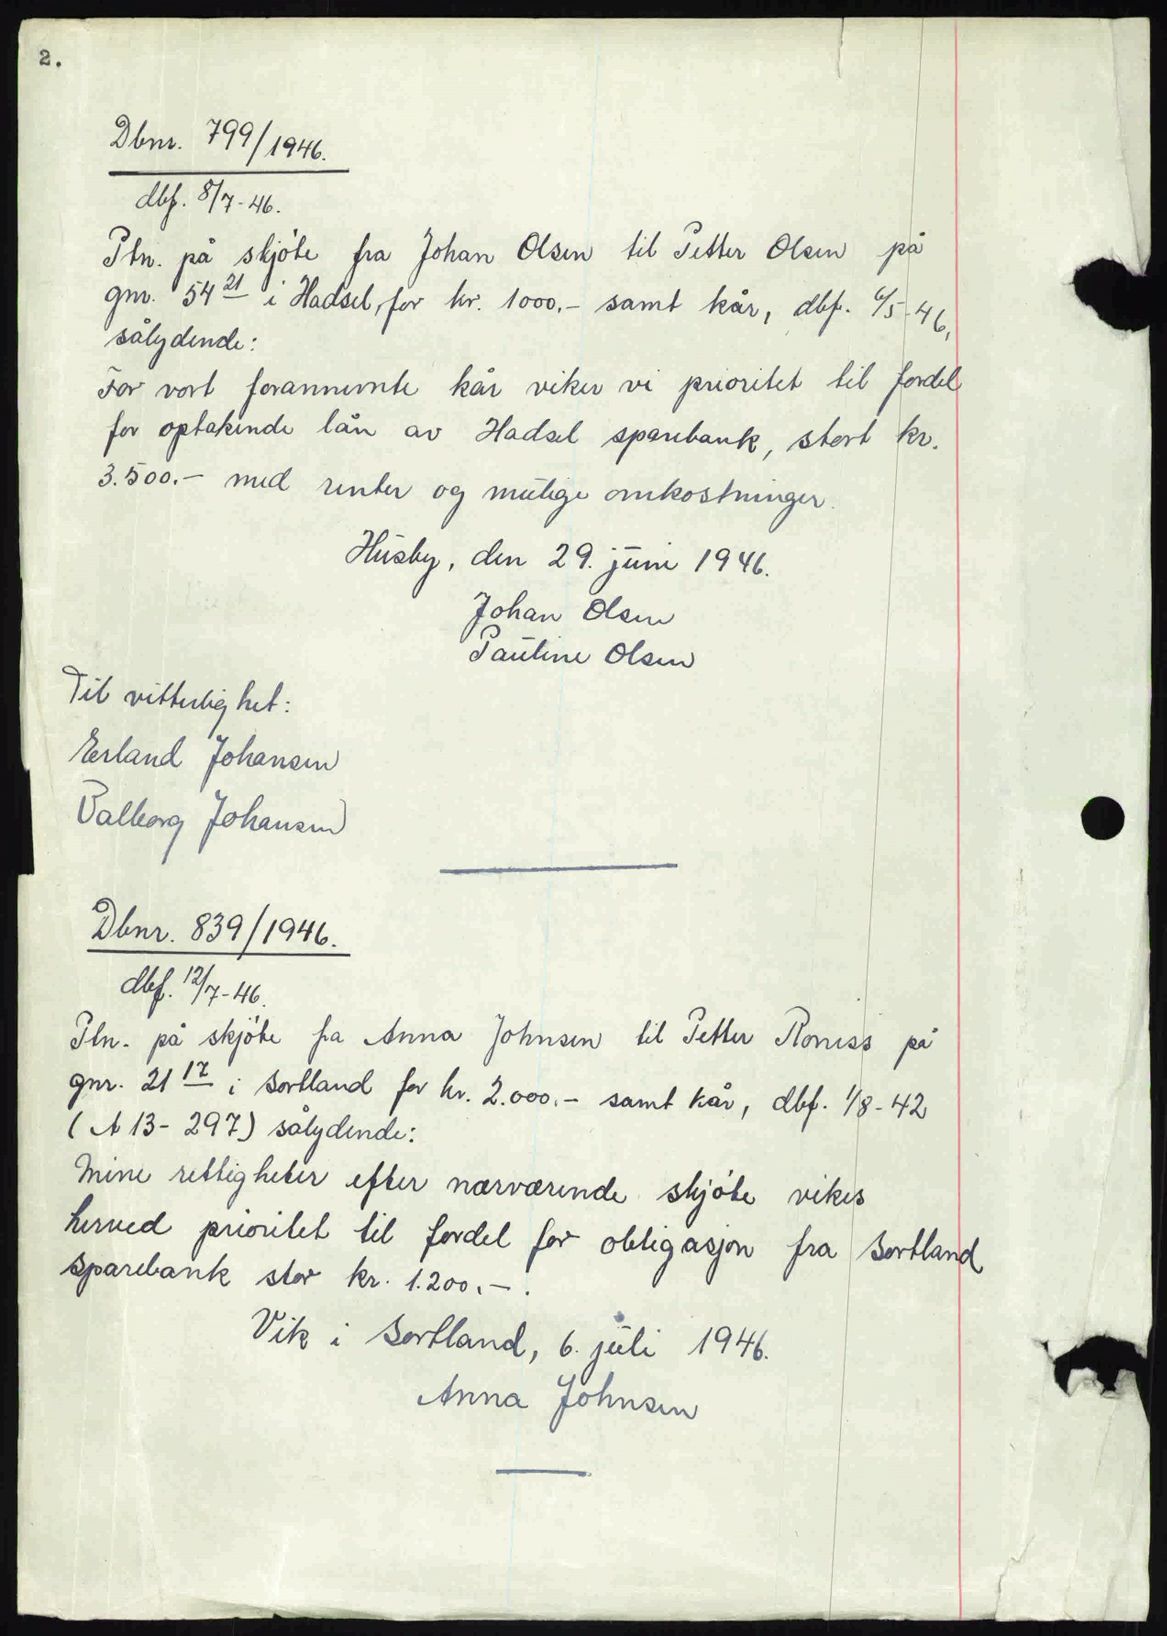 2.
Dbnr. 799/1946.
dbf. 8/7-46.
Ptn. på skjöte fra Johan Olsen til Petter Olsen på
gnr. 54 21 i Hadsel, for kr. 1000.- samt kår, dbf. 6/5-46,
sålydende:
For vort forannevnte kår viker vi prioritet til fordel
for optakende lån av Hadsel sparebank, stort kr.
3.500.- med renter og mulige omkostninger.
Husby, den 29. juni 1946.
Johan Olsen
Pauline Olsen
Til vitterlighet:
Erland Johansen
Valborg Johansen
Dbnr. 839/1946.
dbf. 12/7-46.
Ptn. på skjöte fra Anna Johnsen til Petter på
gnr. 21 17 i Sortland for kr. 2.000.- samt kår, dbf. 1/8-42
(A 13-297) sålydende:
Mine rettigheter efter nærværende skjöte vikes
herved prioritet til fordel for obligasjon fra Sortland
Sparebank stor kr. 1.200.-.
Vik i Sortland, 6. juli 1946.
Anna Johnsen